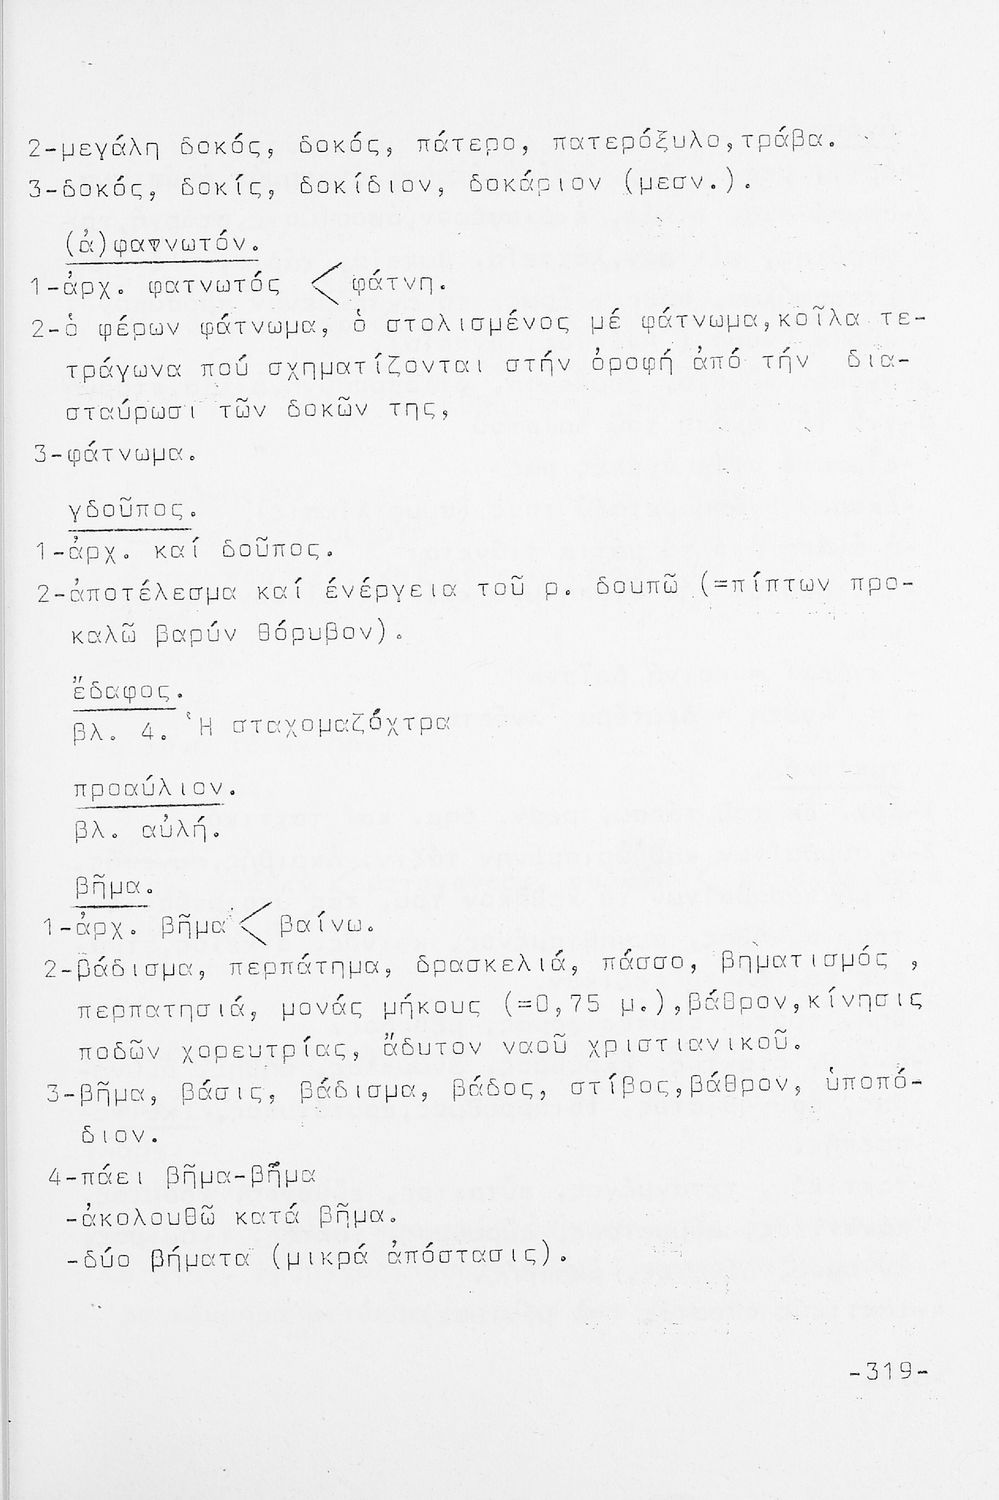 2-μεγάλη δοκός, δοκός, πάτερο, πατερόξυλο,τράβα.
3-δοκός, δοκίς, δοκίδιον, δοκάριον (μεσν.).
(ἀ)φατνωτόν.
1-ἀρχ. φατνωτός < φάτνη.
2-ὁ φέρων φάτνωμα, ὁ στολισμένος μέ φάτνωμα,κοῖλα τε-
τράγωνα πού σχηματίζονται στήν ὀροφή ἀπό τήν δια-
σταύρωσι τῶν δοκῶν της,
3-φάτνωμα.
γδοῦπος.
1-ἀρχ. καί δοῦπος.
2-ἀποτέλεσμα καί ἐνέργεια τοῦ ρ. δουπῶ (=πίπτων προ-
καλῶ βαρύν θόρυβον).
ἔδαφος.
βλ. 4. Ἡ σταχομαζόχτρα
προαύλιον.
βλ. αὐλή.
βῆμα.
1-ἀρχ. βῆμα < βαίνω.
2-βάδισμα, περπάτημα, δρασκελιά, πάσσο, βηματισμός ,
περπατησιά, μονάς μήκους (=0,75 μ.),βάθρον,κίνησις
ποδῶν χορευτρίας, ἄδυτον ναοῦ χριστιανικοῦ.
3-βῆμα, βάσις, βάδισμα, βάδος, στίβος,βάθρον, ὑποπό-
διον.
4-πάει βῆμα-βῆμα
-ἀκολουθῶ κατά βῆμα.
-δύο βήματα (μικρά ἀπόστασις).
-319-